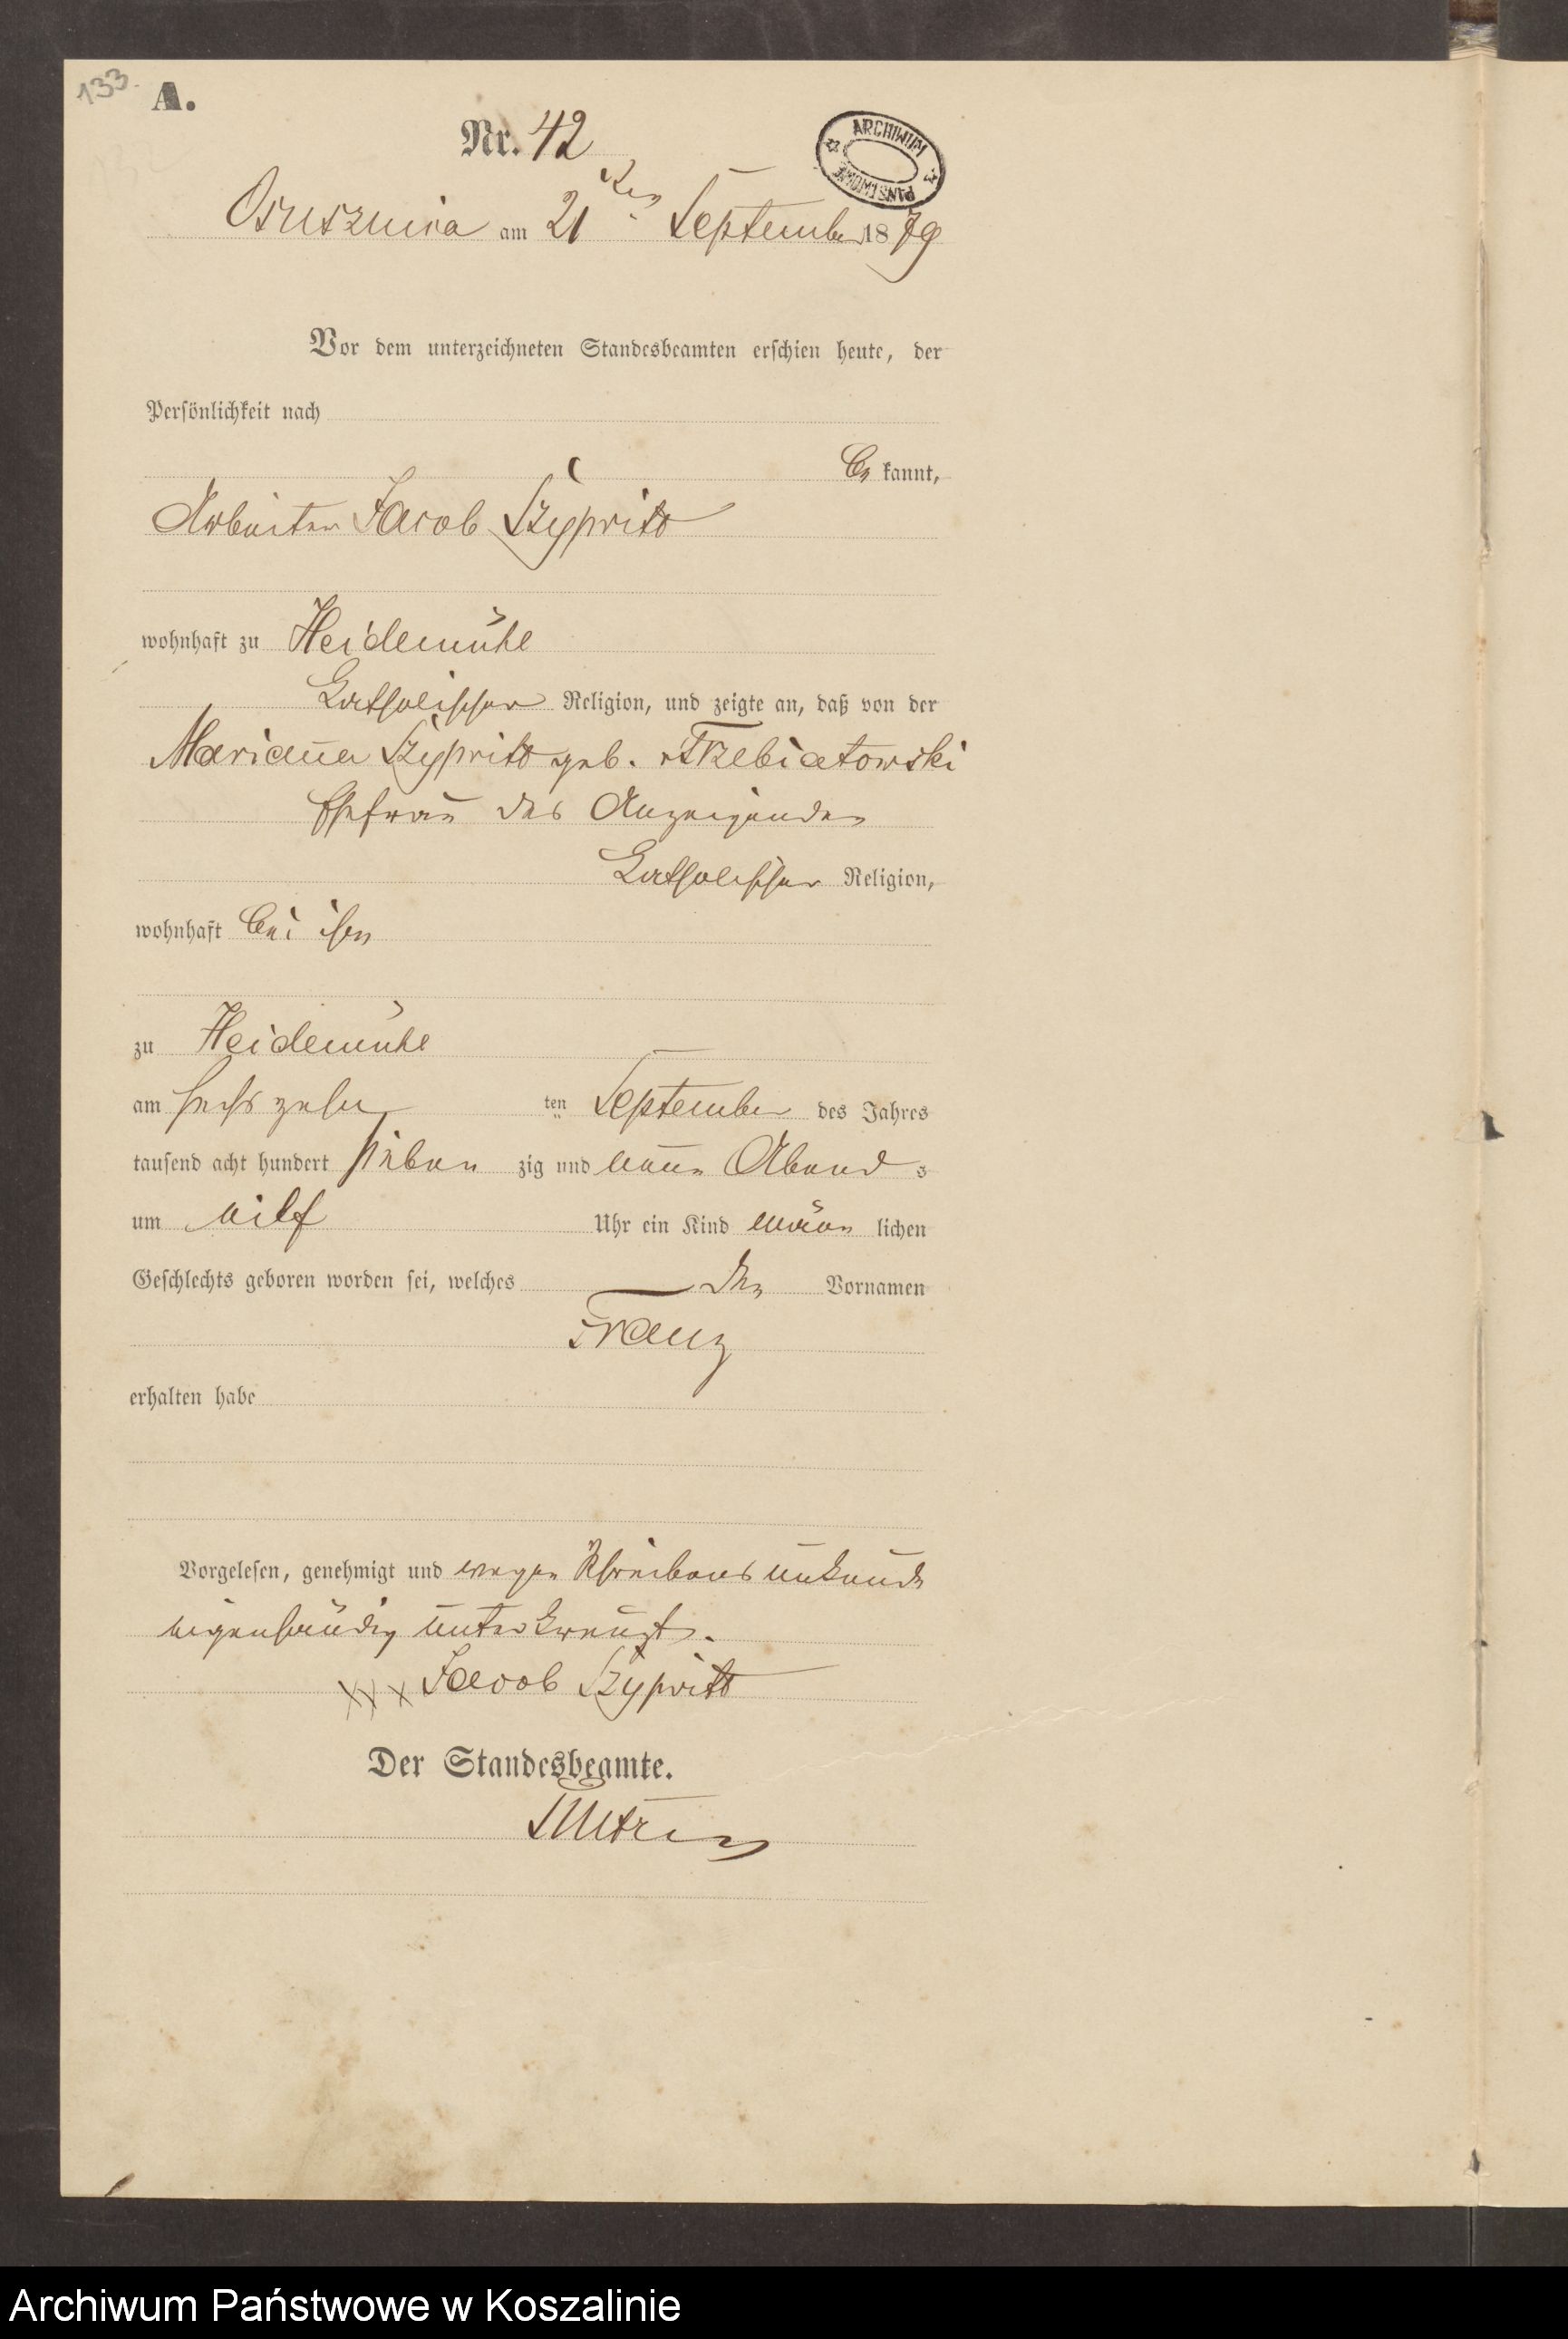 133.
A.
Nr. 42
ARCHIWUM PAŃSTWOWE
Osusznica am 21ten September 1879
Vor dem unterzeichneten Standesbeamten erschien heute, der
Persönlichkeit nach
be kannt,
Arbeiter Jacob
wohnhaft zu Heidemühl
Katholischer Religion, und zeigte an, daß von der
Mariana geb. Trzebiatowski
Ehefrau des Anzeigenden
Katholischer Religion,
wohnhaft bei ihm
zu Heidemühl
am sechszehn ten September des Jahres
tausend acht hundert sieben zig und neun Abends
um eilf Uhr ein Kind männ lichen
Geschlechts geboren worden sei, welches den Vornamen
Franz
erhalten habe
Vorgelesen, genehmigt und wegen Schreibens unkunde
eigenhändig unterkreuzt.
XXX Jacob
Der Standesbeamte.
Archiwum Państwowe w Koszalinie